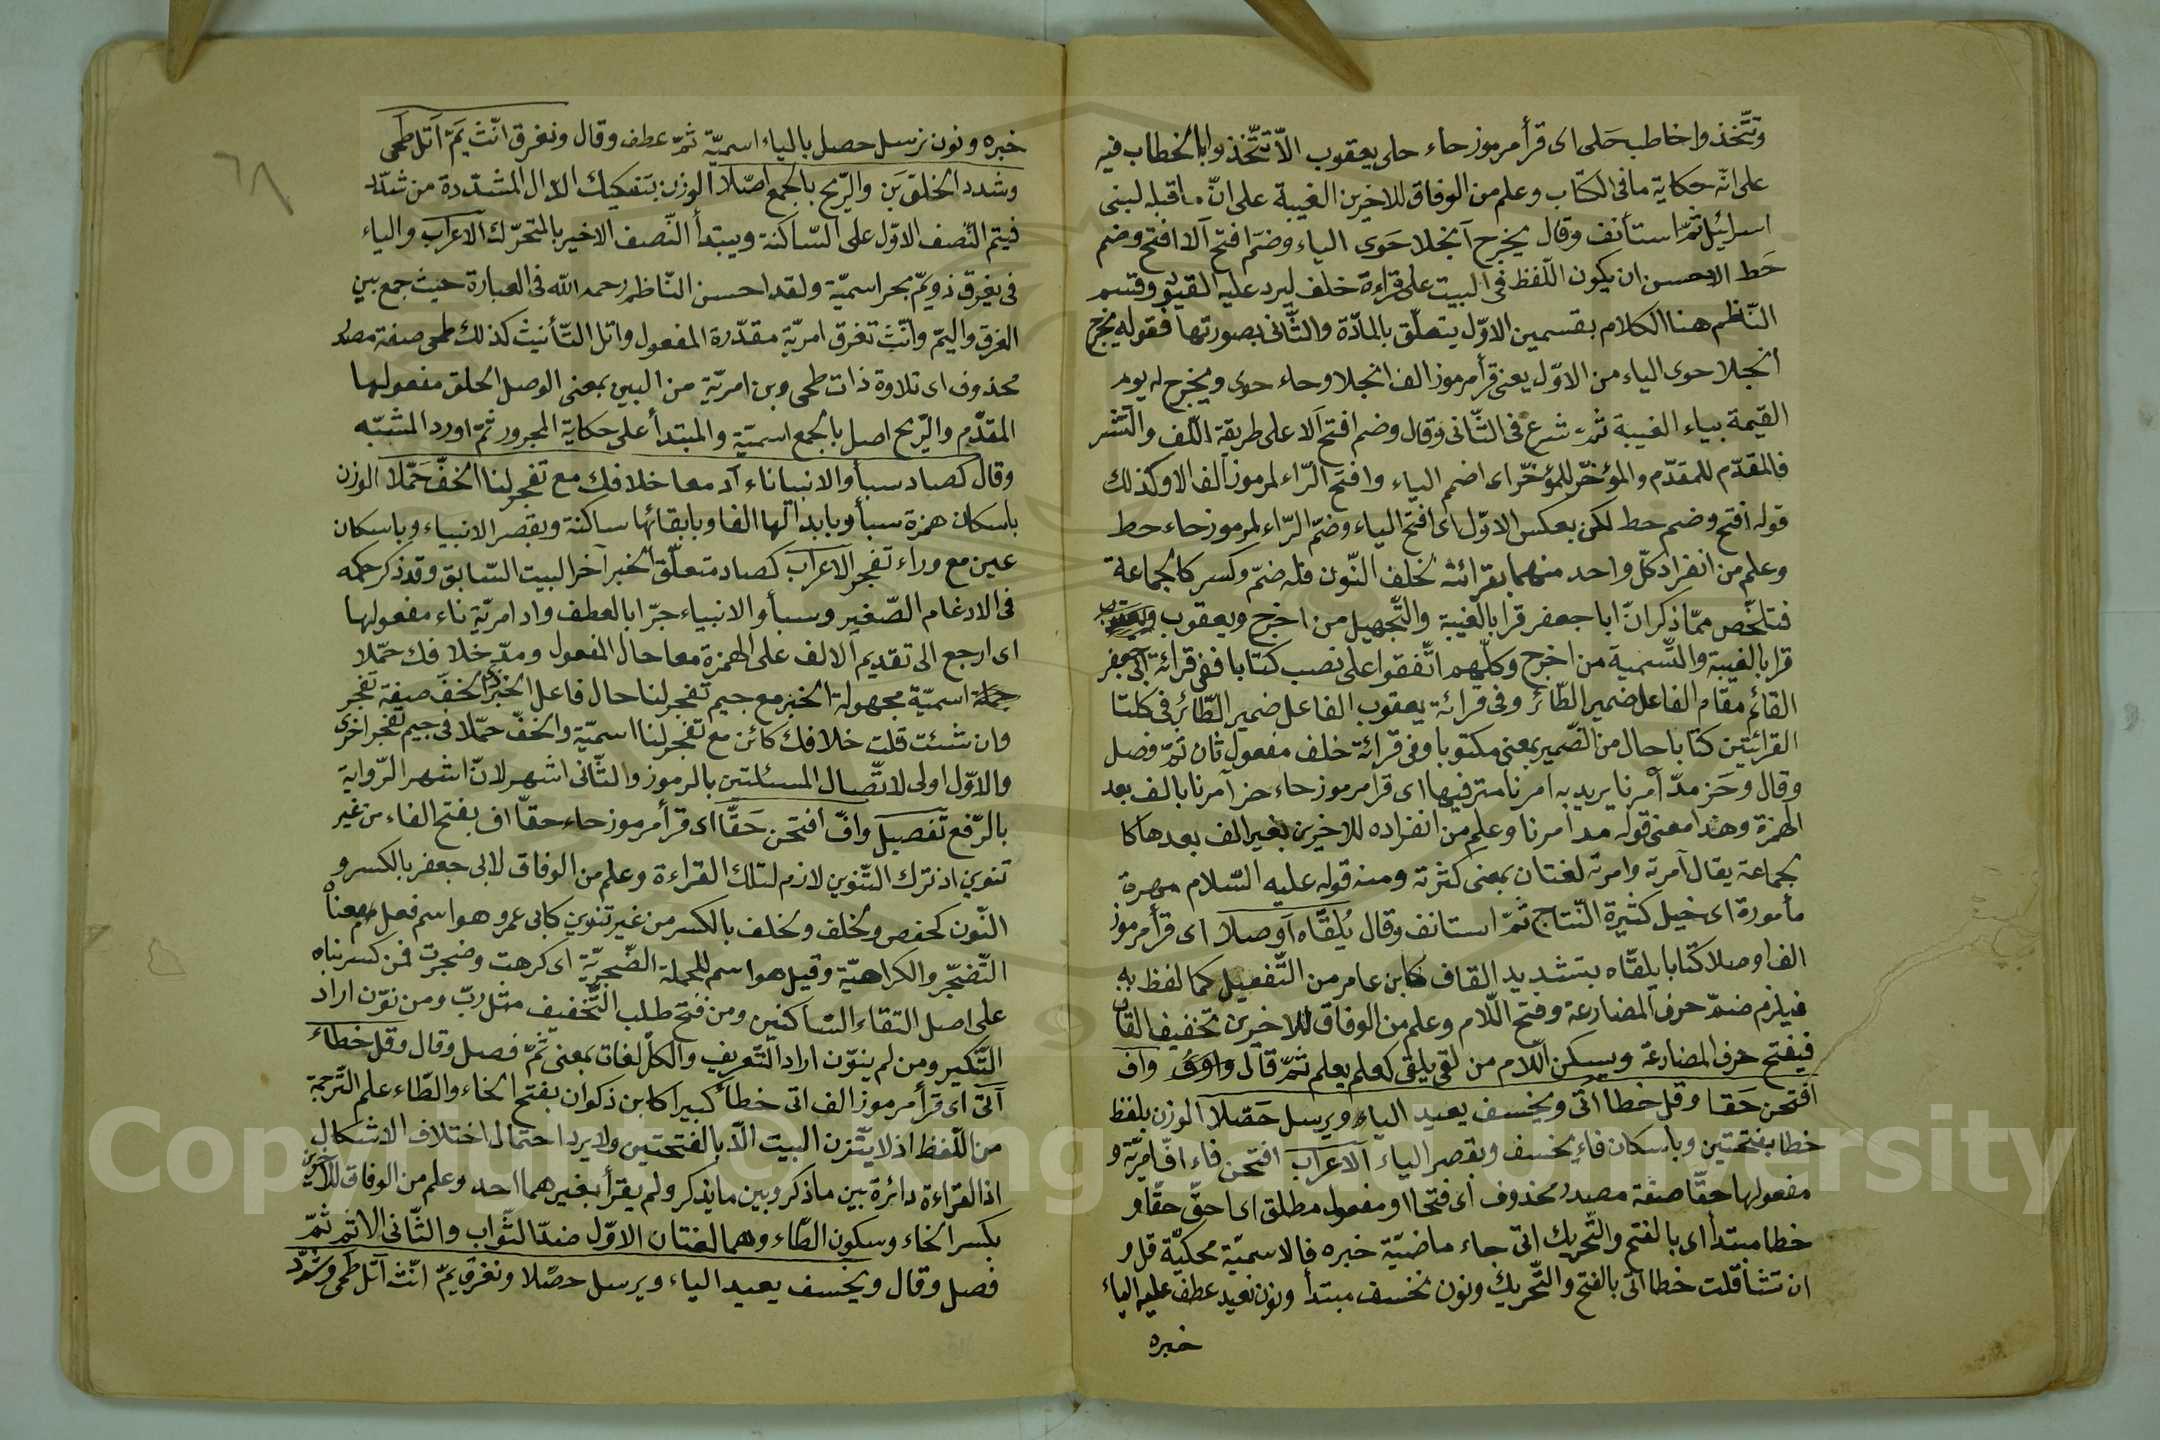 وتتخذوا خاطب حَلى اى قرأ مرموز حاء حلى يعقوب الّا تتّخذوا بالخطاب فيه
على انّه حكاية ما فى الكتاب وعلم من الوفاق للاخرين الغيبة على انّ ما قبله لبنى
اسرائيل ثمّ استأنف وقال يخرج آنجلا حَوى الياء وضمّ افتح آلا افتح وضم
حَط الاحسن ان يكون اللّفظ فى البيت على قراءة خلف ليرد عليه القيود وقسم
النّاظم هنا الكلام بقسمين الاوّل يتعلّق بالمادّة والثّانى بصورتها فقوله يخرج
انجلا حوى الياء من الاوّل يعنى قرأ مرموز الف انجلا وحاء حوى ويخرج له يوم
القيمة بياء الغيبة ثمّ شرع فى الثّانى وقال وضم افتح آلا على طريقة اللّف والنّشر
فالمقدّم للمقدّم والمؤخّر للمؤخّر اى اضمم الياء وافتح الرّاء لمرموز الف الا وكذلك
قوله افتح وضم حط لكن بعكس الاوّل اى افتح الياء وضمّ الرّاء لمرموز حاء حط
وعلم من انفراد كلّ واحد منهما بقرائته لخلف النّون فله ضمّ وكسر كالجماعة
فتلخّص ممّا ذكر انّ ابا جعفر قرا بالغيبة والتّجهيل من اخرج ويعقوب
قرا بالغيبة والتّسمية من اخرج وكلّهم اتّفقوا على نصب كتابا ففى قرائة ابى جعفر
القائم مقام الفاعل ضمير الطّائر وفى قرائة يعقوب الفاعل ضمير الطّائر فى كلتا
القرائتين كتابا حال من الضّمير بمعنى مكتوبا وفى قرائة خلف مفعول ثان ثمّ فصل
وقال وحَز مدّ آمرنا يريد به امرنا مترفيها اى قرا مرموز حاء حز آمرنا بالف بعد
الهمزة وهذا معنى قوله مد آمرنا وعلم من انفراده للاخرين بغير الف بعدها كا
لجماعة يقال آمرته وامرته لغتان بمعنى كثرته ومنه قوله عليه السّلام مهرة
مأمورة اى خيل كثيرة النّتاج ثمّ استانف وقال يُلقّاه آوصلا اى قرأ مرموز
الف اوصلا كتابا يلقّاه بتشديد القاف كابن عامر من التّفعيل كما لفظ به
فيلزم ضمّ حرف المضارعة وفتح اللّام وعلم من الوفاق للاخرين تخفيف القاف
فيفتح حرف المضارعة ويسكن اللّام من لقى يلقى كعلم يعلم ثمّ قال واف
افتحن حَقا وقل خطا اتى ويخسف يعيد الياء ويرسل حَصّلا الوزن بلفظ
خطا بفتحتين وباسكان فاء يخسف وبقصر الياء الاعراب افتحن فاء افّ امريّة و
مفعولها حقّا صفة مصدر محذوف اى فتحا او مفعول مطلق اى احقّ حقّا و
خطا مبتدأ اى بالفتح والتّحريك اتى جاء ماضيّة خبره فالاسميّة محكيّة قل و
ان تشأ قلت خطا اتى بالفتح والتّحريك ونون نخسف مبتدأ ونون نعيد عطف عليه الياء
خبره
٦٨
خبره ونون نرسل حصل بالياء اسميّة ثمّ عطف وقال ونغرق انّث يَمّ اتل طمى
وشدد الخلق بَن والرّيح بالجمع اصّلا الوزن بتفكيك الدّال المشدّدة من شدّد
فيتم النّصف الاوّل على السّاكنة ويبتدأ النّصف الاخير بالمتحرّك الاعراب والياء
فى يغرق ذو يَمّ بحر اسميّة ولقد احسن النّاظم رحمه الله فى العبارة حيث جمع بين
الغرق واليمّ وانّث تغرق امريّة مقدّرة المفعول واتل التّأنيث كذلك طمى صفة مصدر
محذوف اى تلاوة ذات طمى وبن امريّة من البين بمعنى الوصل الخلق مفعولها
المقدّم والرّيح اصل بالجمع اسميّة والمبتدأ على حكاية المجرور ثمّ اورد المشبّه
وقال كصاد سبأ والانبيا ناء اد معا خلافك مع تفجر لنا الخفّ حمّلا الوزن
باسكان همزة سبأ وبابدالها الفا وبابقائها ساكنة وبقصر الانبياء وباسكان
عين مع وراء تفجر الاعراب كصاد متعلّق الخبر آخر البيت السّابق وقد ذكر حكمه
فى الادغام الصّغير وسبأ والانبياء جرّا بالعطف واد امريّة ناء مفعولها
اى ارجع الى تقديم الالف على الهمزة معا حال المفعول ومدّ خلافك حمّلا
جملة اسميّة مجهولة الخبر مع جيم تفجر لنا حال فاعل الخبر الخفّ صفة تفجر
وان شئت قلت خلافك كائن مع تفجر لنا اسميّة والخفّ حمّلا فى جيم تفجر اخرى
والاوّل اولى لاتّصال المسئلتين بالرموز والثّانى اشهر لانّ اشهر الرّواية
بالرّفع تفصيل وافّ افتحن حَقّا اى قرأ مرموز حاء حقّا اف بفتح الفاء من غير
تنوين اذ ترك التّنوين لازم لتلك القراءة وعلم من الوفاق لابى جعفر بالكسر و
النّون كحفص ولخلف بالكسر من غير تنوين كابى عمرو هو اسم فعل معناه
التّضجّر والكراهيّة وقيل هو اسم للجملة الضّجريّة اى كرهت وضجرت فمن كسر بناه
على اصل التقاء السّاكنين ومن فتح طلب التّخفيف مثل ربّ ومن نوّن اراد
التّنكير ومن لم ينوّن اراد التّعريف والكلّ لغات بمعنى ثمّ فصل وقال وقل خطاء
آتى اى قرأ مرموز الف اتى خطأ كبيرا كابن ذكوان بفتح الخاء والطّاء علم التّرجمة
من اللّفظ اذ لا يتّزن البيت الّا بالفتحتين ولا يرد احتمال اختلاف الاشكال
اذ القراءة دائرة بين ما ذكر وبين ما يذكر ولم يقرأ بغيرهما احد وعلم من الوفاق للآخرين
بكسر الخاء وسكون الطّاء وهما لغتان الاوّل ضدّ الثّواب والثّانى الاثم ثمّ
فصل وقال ويخسف يعيد الياء ويرسل حصّلا ونغرق يمّ انّث اتل طمى وشدّد
Copyright © King Saud University